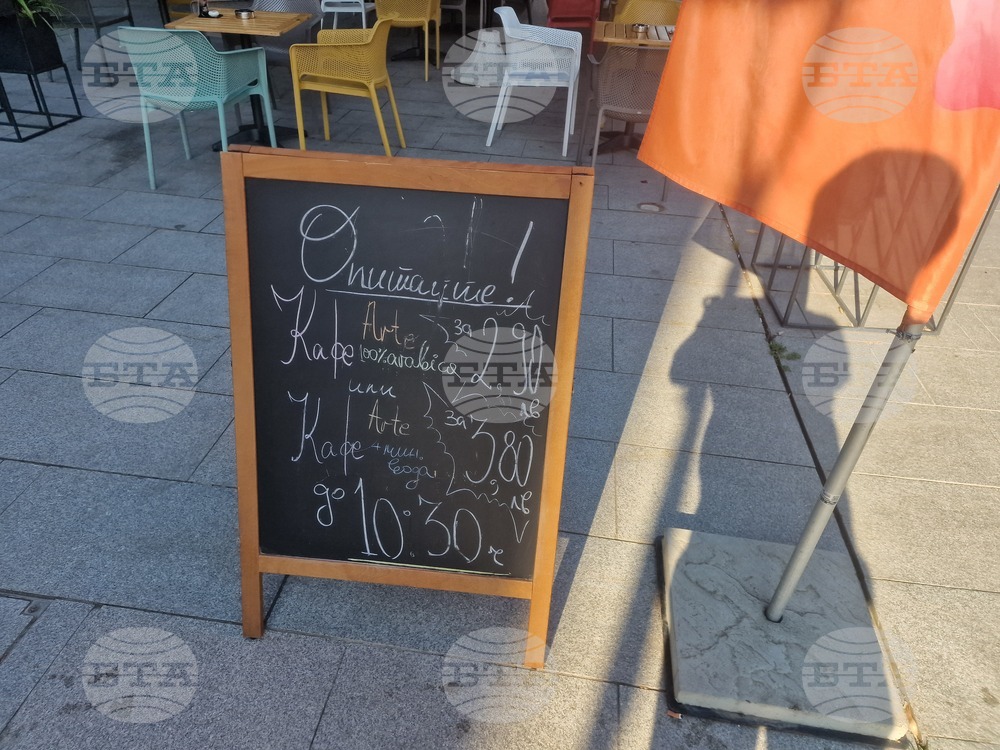 Опитайте!
Кафе Arte за 2,90 лв
100% arabica
или
Кафе Arte за 3,80 лв
+ мин. вода
до 10:30 ч
БТА
БТА
БТА
БТА
БТА
БТА
БТА
БТА
БТА